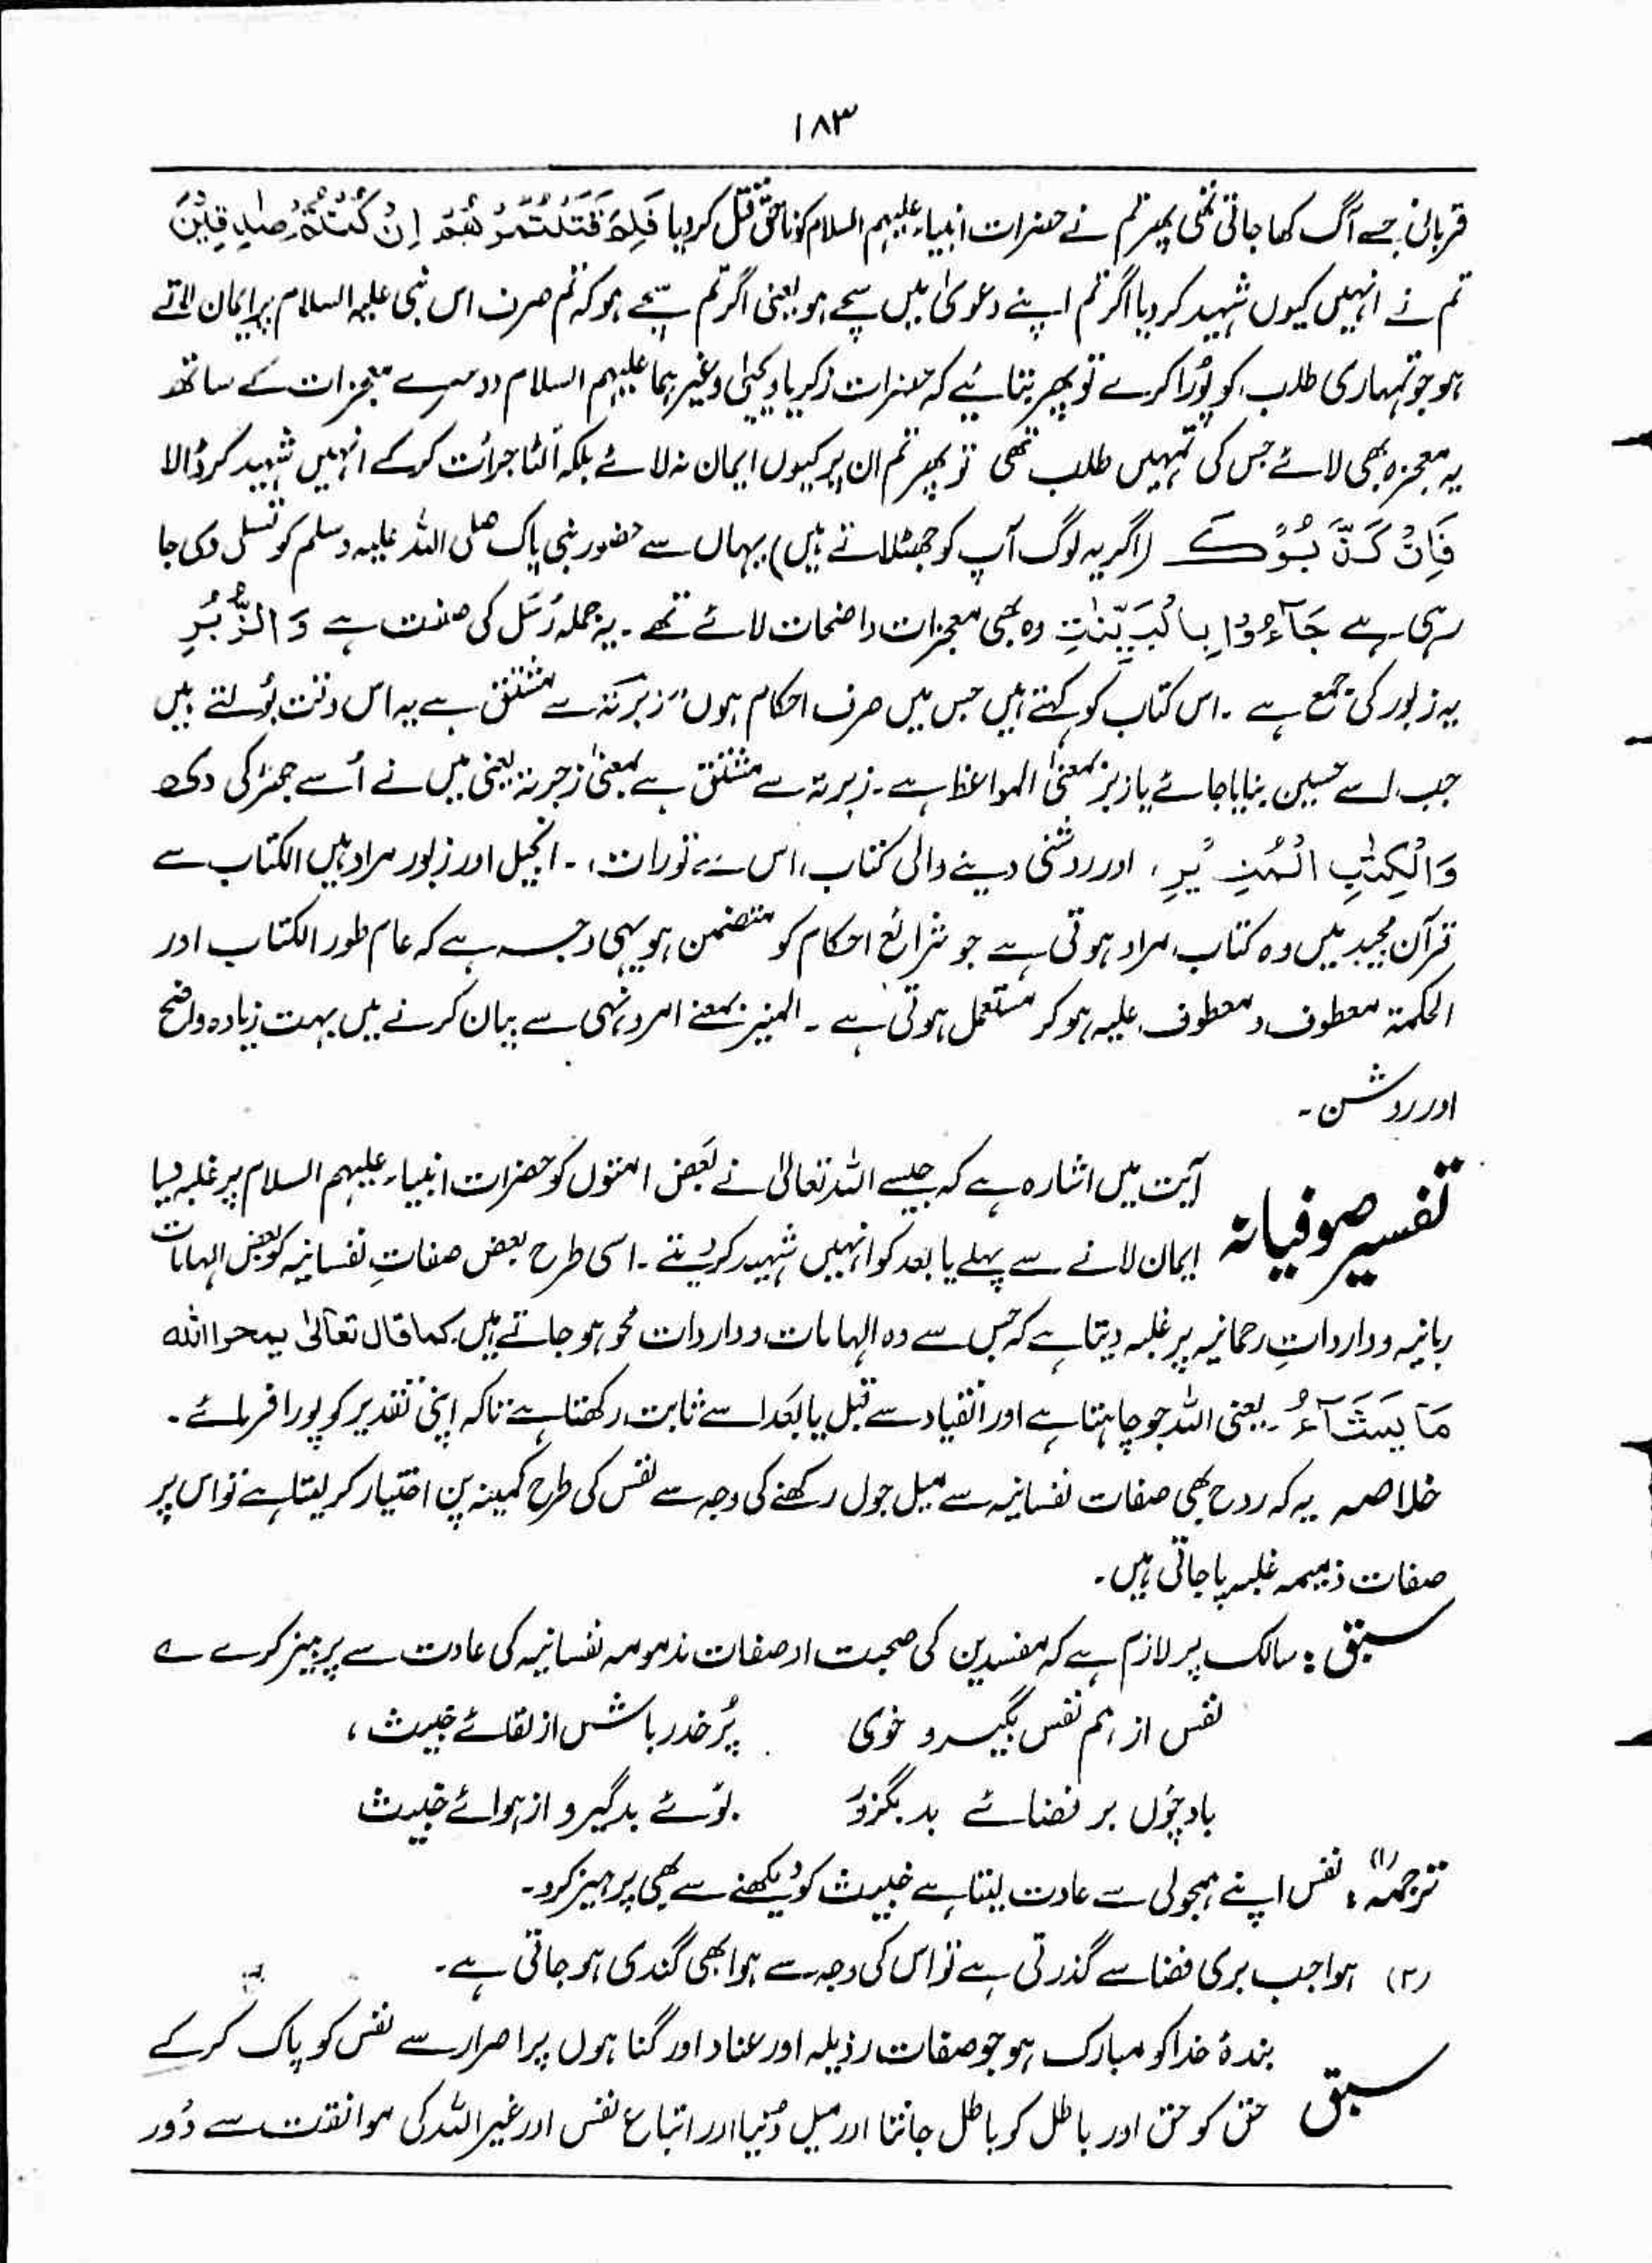 ۱۸۳
قربانی جسے آگ کھا جاتی تھی پھر تم نے حضرات انبیاء علیہم السلام کو ناحق قتل کر دیا فَلِمَ قَتَلْتُمُوْهُمْ اِنْ كُنْتُمْ صٰدِقِيْنَ
تم نے انہیں کیوں شہید کر دیا اگر تم اپنے دعویٰ میں سچے ہو یعنی اگر تم سچے ہو کہ تم صرف اس نبی علیہ السلام پر ایمان لاتے
ہو جو تمہاری طلب کو پُورا کرے تو پھر بتائیے کہ حضرات زکریا و یحییٰ وغیرہما علیہم السلام دوسرے معجزات کے ساتھ
یہ معجزہ بھی لائے جس کی تمہیں طلب تھی تو پھر تم ان پر کیوں ایمان نہ لائے بلکہ اُلٹا جرأت کرکے انہیں شہید کر ڈالا
فَاِنْ كَذَّبُوْكَ (اگر یہ لوگ آپ کو جھٹلاتے ہیں) یہاں سے حضور نبی پاک صلی اللہ علیہ وسلم کو تسلی دی جا
رہی ہے جَآءُوْا بِالْبَيِّنٰتِ وہ بھی معجزات واضحات لائے تھے ۔ یہ جملہ رُسُل کی صفت ہے وَ الزُّبُرِ
یہ زبور کی جمع ہے ۔ اس کتاب کو کہتے ہیں جس میں صرف احکام ہوں، زَبَرْتُہٗ سے مشتق ہے یہ اس وقت بولتے ہیں
جب اسے حسین بنایا جائے یا زبر بمعنیٰ المواعظ ہے ۔ زبرتہ سے مشتق ہے بمعنیٰ زجرتہ یعنی میں نے اُسے جھڑکی دی
وَالْكِتٰبِ الْمُنِيْرِ ، اور روشنی دینے والی کتاب، اس سے تورات، ۔ انجیل اور زبور مراد ہیں الکتاب سے
قرآن مجید میں وہ کتاب مراد ہوتی ہے جو شرائع احکام کو متضمن ہو یہی وجہ ہے کہ عام طور الکتاب اور
الحکمۃ معطوف و معطوف علیہ ہو کر مستعمل ہوتی ہے ۔ المنیر بمعنے امر و نہی سے بیان کرنے میں بہت زیادہ واضح
اور روشن ۔
تفسیر صوفیانہ آیت میں اشارہ ہے کہ جیسے اللہ تعالیٰ نے بعض امتوں کو حضرات انبیاء علیہم السلام پر غلبہ دیا
ایمان لانے سے پہلے یا بعد کو انہیں شہید کر دیتے ۔ اسی طرح بعض صفاتِ نفسانیہ کو بعض الہامات
ربانیہ و وارداتِ رحمانیہ پر غلبہ دیتا ہے کہ جس سے وہ الہامات و واردات محو ہو جاتے ہیں کما قال تعالیٰ یمحوا اللہ
مَا يَشَآءُ ۔ یعنی اللہ جو چاہتا ہے اور انقیاد سے قبل یا بعد اسے ثابت رکھتا ہے تاکہ اپنی تقدیر کو پورا فرمائے ۔
خلاصہ یہ کہ روح بھی صفات نفسانیہ سے میل جول رکھنے کی وجہ سے نفس کی طرح کمینہ پن اختیار کر لیتا ہے تو اس پر
صفات ذمیمہ غلبہ پا جاتی ہیں ۔
سبق : سالک پر لازم ہے کہ مفسدین کی صحبت اور صفات مذمومہ نفسانیہ کی عادت سے پرہیز کرے ؎
نفس از ہم نفس بگیرد خوی پُر حذر باش از لقائے خبیث ،
باد چُوں بر فضائے بد بگزرد بوئے بد گیرد از ہوائے خبیث
ترجمہ : (۱) نفس اپنے ہمجولی سے عادت لیتا ہے خبیث کو دیکھنے سے بھی پرہیز کرو ۔
(۲) ہوا جب بری فضا سے گذرتی ہے تو اس کی وجہ سے ہوا بھی گندی ہو جاتی ہے ۔
سبق بندۂ خدا کو مبارک ہو جو صفات رذیلہ اور عناد اور گناہوں پر اصرار سے نفس کو پاک کرکے
حق کو حق اور باطل کو باطل جانتا اور میل دُنیا اور اتباع نفس اور غیر اللہ کی موافقت سے دُور